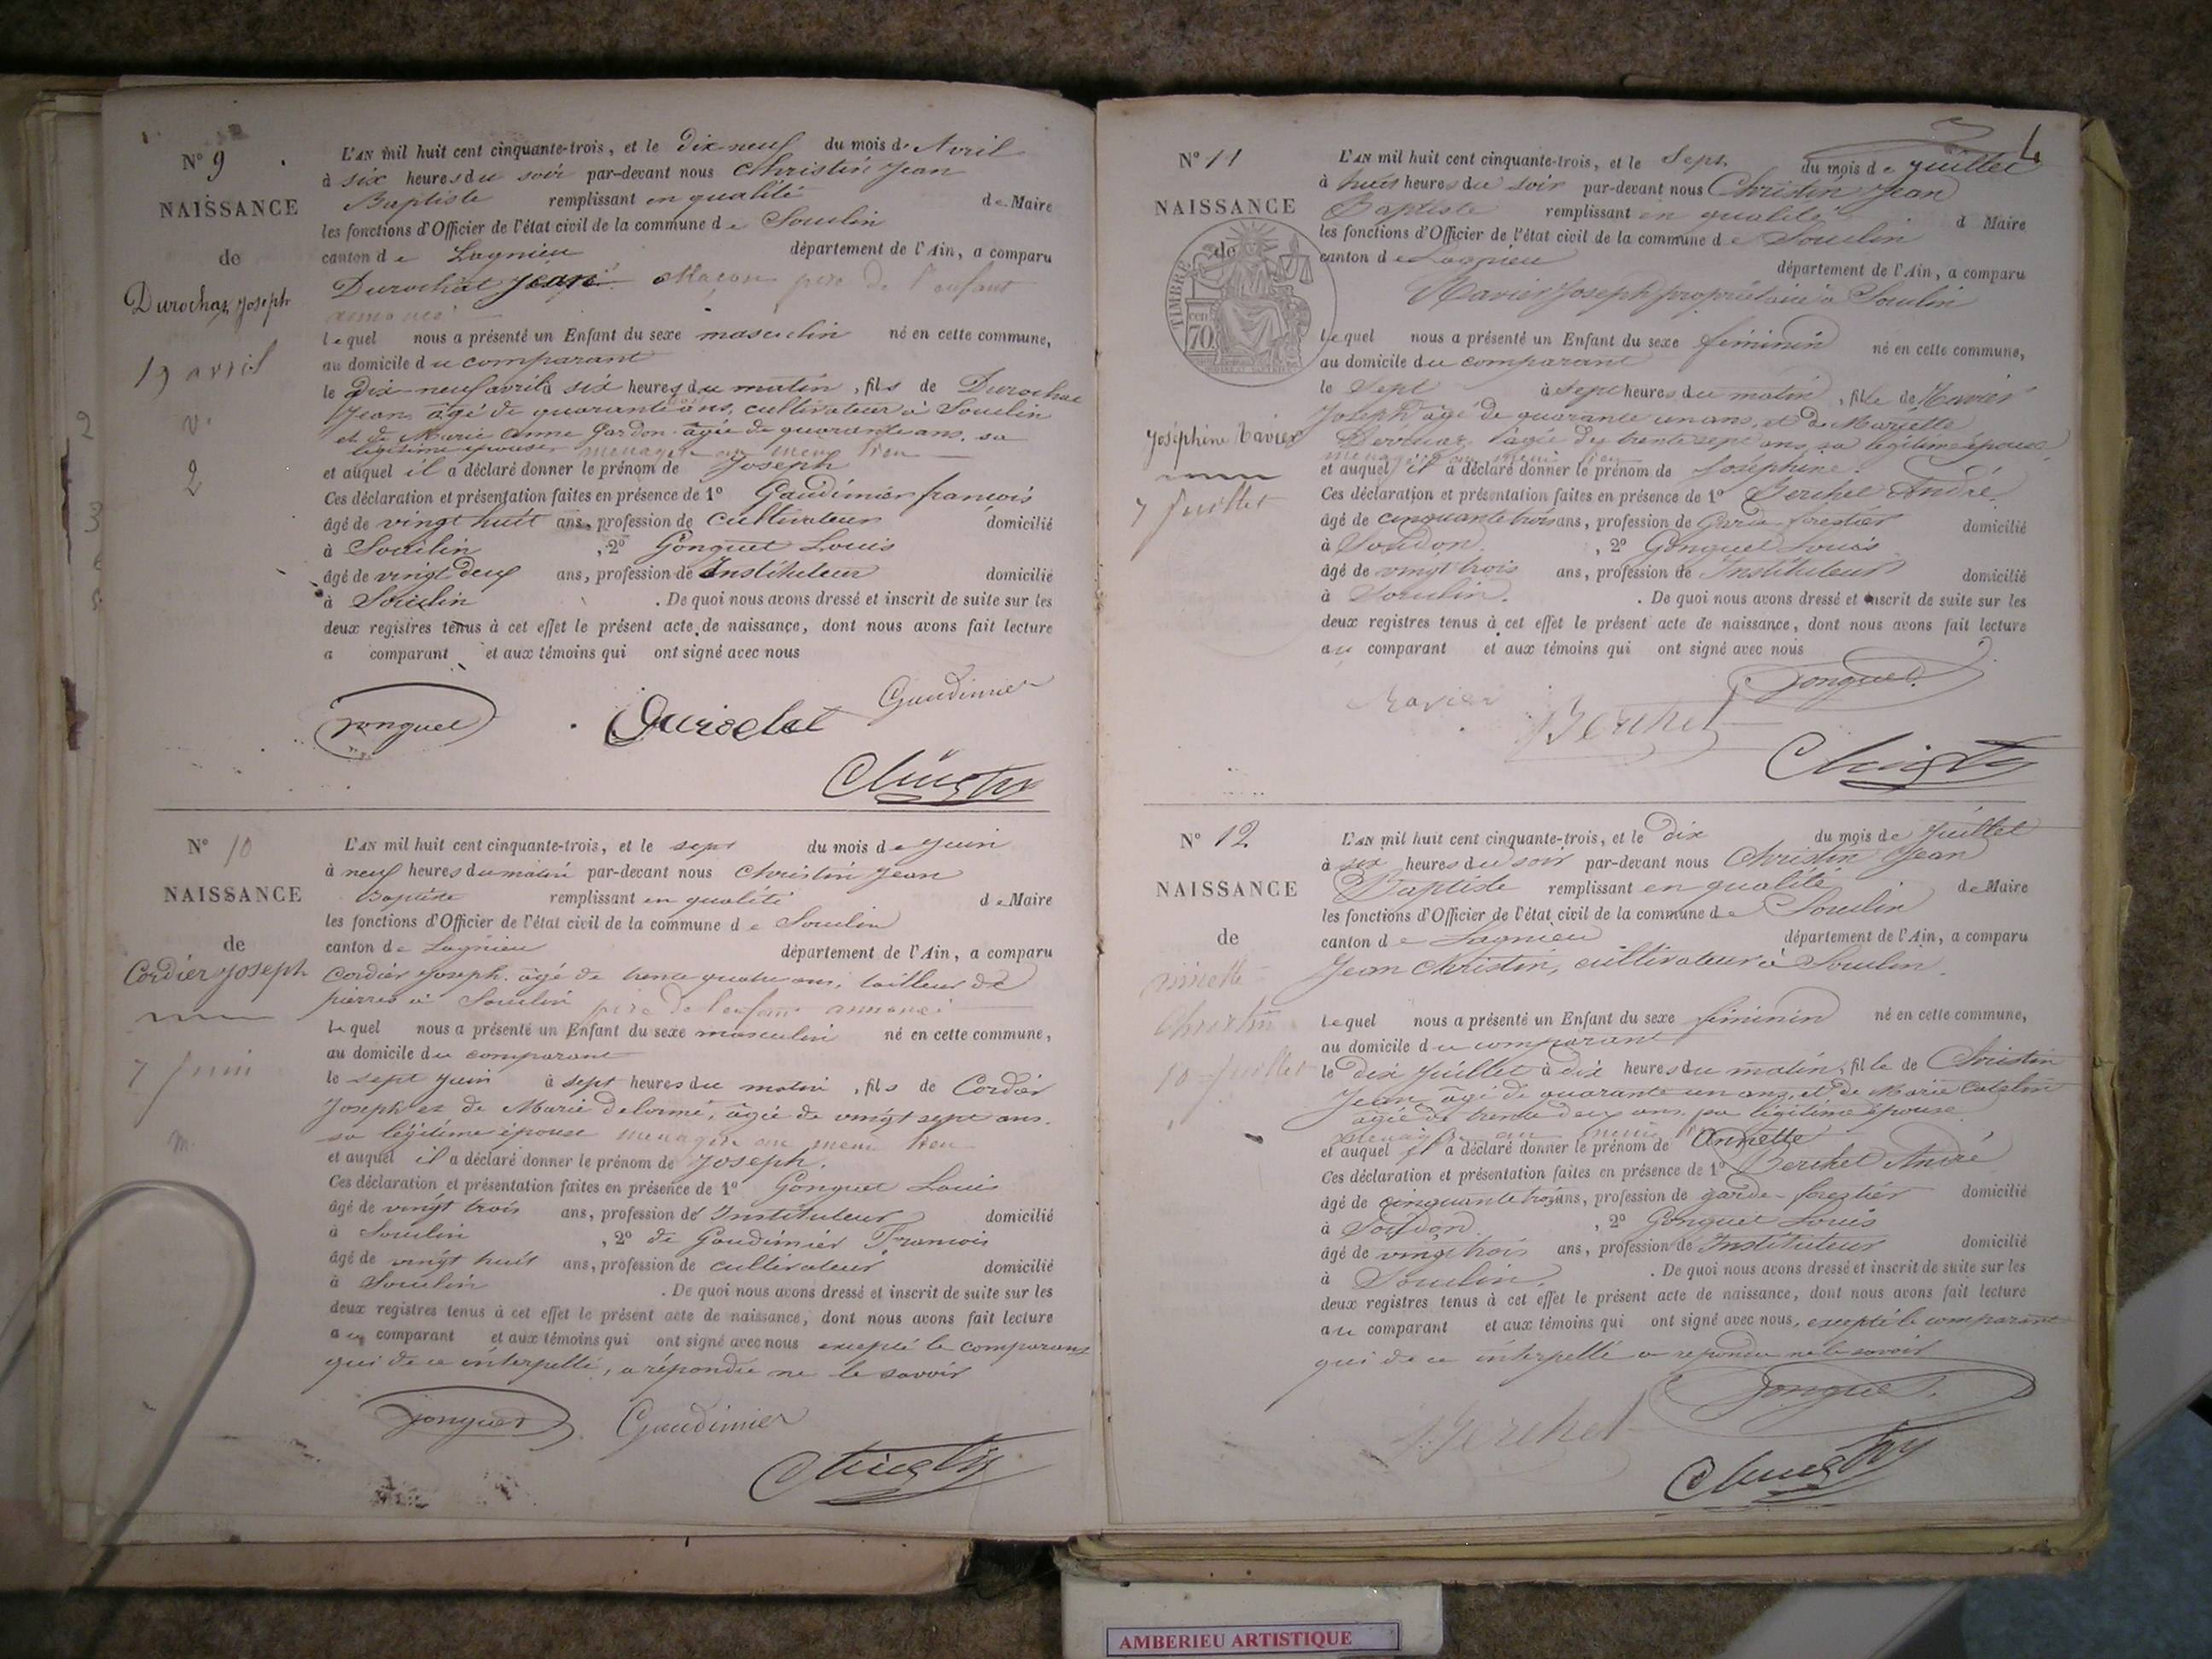 N° 9
NAISSANCE
de
Durochat Joseph
19 avril
v.
2
L'AN mil huit cent cinquante-trois, et le Dix-neuf du mois de Avril
à six heures du soir par-devant nous Christin Jean
Baptiste remplissant en qualité de Maire
les fonctions d'Officier de l'état civil de la commune de Souclin
canton de Lagnieu département de l'Ain, a comparu
Durochat Jean Maçon père de l'enfant
annoncé
lequel nous a présenté un Enfant du sexe masculin né en cette commune,
au domicile du comparant
le Dix-neuf avril à six heures du matin, fils de Durochat
Jean âgé de quarante ans, cultivateur à Souclin
et de Marie Anne Gardon âgée de quarante ans, sa
légitime épouse ménagère au meme lieu
et auquel il a déclaré donner le prénom de Joseph
Ces déclaration et présentation faites en présence de 1° Gaudimier francois
âgé de vingt huit ans, profession de Cultivateur domicilié
à Souclin, 2° Gonguet Louis
âgé de vingt deux ans, profession de Instituteur domicilié
à Souclin. De quoi nous avons dressé et inscrit de suite sur les
deux registres tenus à cet effet le présent acte de naissance, dont nous avons fait lecture
a comparant et aux témoins qui ont signé avec nous
Gonguet Durochat Gaudimier
Christin
N° 10
NAISSANCE
de
Cordier Joseph
7 Juin
m.
L'AN mil huit cent cinquante-trois, et le sept du mois de Juin
à neuf heures du matin par-devant nous Christin Jean
Baptiste remplissant en qualité de Maire
les fonctions d'Officier de l'état civil de la commune de Souclin
canton de Lagnieu département de l'Ain, a comparu
Cordier Joseph âgé de trente quatre ans, tailleur de
pierres à Souclin père de l'enfant annoncé
lequel nous a présenté un Enfant du sexe masculin né en cette commune,
au domicile du comparant
le sept Juin à sept heures du matin, fils de Cordier
Joseph et de Marie Delorme, âgée de vingt sept ans.
sa légitime épouse menagère au meme lieu
et auquel il a déclaré donner le prénom de Joseph.
Ces déclaration et présentation faites en présence de 1° Gonguet Louis
âgé de vingt trois ans, profession de Instituteur domicilié
à Souclin, 2° de Gaudimier Francois
âgé de vingt huit ans, profession de cultivateur domicilié
à Souclin. De quoi nous avons dressé et inscrit de suite sur les
deux registres tenus à cet effet le présent acte de naissance, dont nous avons fait lecture
au comparant et aux témoins qui ont signé avec nous excepté le comparant
qui de ce interpellé, a répondu ne le savoir
Gonguet Gaudimier
Christin
4
N° 11
NAISSANCE
de
TIMBRE
70 cen
Joséphine Ravier
7 Juillet
L'AN mil huit cent cinquante-trois, et le Sept du mois de Juillet
à huit heures du soir par-devant nous Christin Jean
Baptiste remplissant en qualité d Maire
les fonctions d'Officier de l'état civil de la commune de Souclin
canton de Lagnieu département de l'Ain, a comparu
Ravier Joseph propriétaire à Souclin
lequel nous a présenté un Enfant du sexe féminin né en cette commune,
au domicile du comparant
le Sept à sept heures du matin, fille de Ravier
Joseph âgé de quarante un ans, et de Mariette
âgée de trente sept ans, sa légitime épouse
menagère au meme lieu
et auquel il a déclaré donner le prénom de Joséphine.
Ces déclaration et présentation faites en présence de 1° Berchet André.
âgé de cinquante trois ans, profession de Garde-forestier domicilié
à Soudon, 2° Gonguet Louis
âgé de vingt trois ans, profession de Instituteur domicilié
à Souclin. De quoi nous avons dressé et inscrit de suite sur les
deux registres tenus à cet effet le présent acte de naissance, dont nous avons fait lecture
au comparant et aux témoins qui ont signé avec nous
Ravier Berchet Gonguet
Christin
N° 12
NAISSANCE
de
Annette
Christin
10 Juillet
L'AN mil huit cent cinquante-trois, et le dix du mois de Juillet
à six heures du soir par-devant nous Christin Jean
Baptiste remplissant en qualité de Maire
les fonctions d'Officier de l'état civil de la commune de Souclin
canton de Lagnieu département de l'Ain, a comparu
Jean Christin, cultivateur à Souclin.
lequel nous a présenté un Enfant du sexe féminin né en cette commune,
au domicile du comparant
le dix Juillet à dix heures du matin, fille de Christin
Jean âgé de quarante un ans, et de Marie Catelin
âgée de trente deux ans, sa légitime épouse
menagère au meme lieu
et auquel il a déclaré donner le prénom de Annette
Ces déclaration et présentation faites en présence de 1° Berchet André
âgé de cinquante trois ans, profession de garde-forestier domicilié
à Soudon, 2° Gonguet Louis
âgé de vingt trois ans, profession de Instituteur domicilié
à Souclin. De quoi nous avons dressé et inscrit de suite sur les
deux registres tenus à cet effet le présent acte de naissance, dont nous avons fait lecture
au comparant et aux témoins qui ont signé avec nous, excepté le comparant
qui de ce interpellé a répondu ne le savoir
Berchet Gonguet
Christin
AMBERIEU ARTISTIQUE